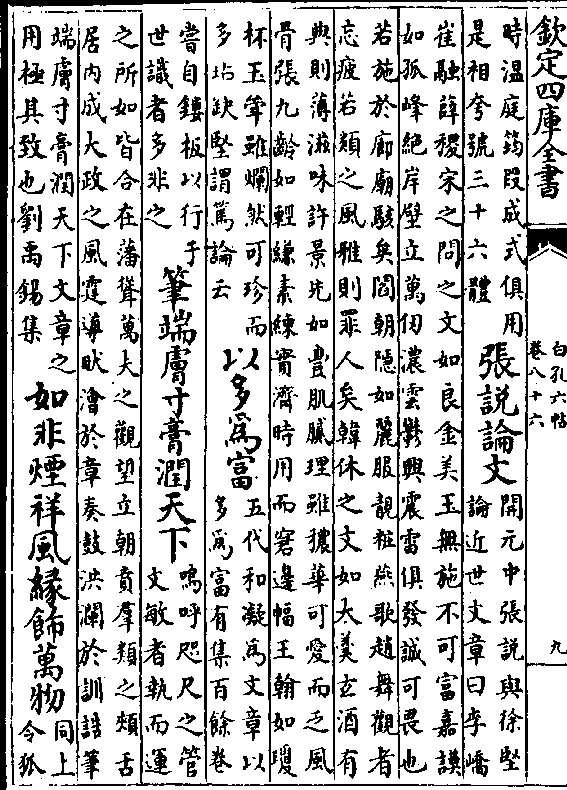 欽定四庫全書
白孔六帖
卷八十六
九
時温庭筠段成式俱用
是相夸號三十六體
張說論文
開元中張說與徐堅
論近世文章曰李嶠
崔融薛稷宋之問之文如良金美玉無施不可富嘉謨
如孤峰絶岸壁立萬仞濃雲鬱興震雷俱發誠可畏也
若施於廊廟駭矣閻朝隱如麗服靚粧燕歌趙舞觀者
忘疲若類之風雅則罪人矣韓休之文如大羹玄酒有
典則薄滋味許景先如豐肌膩理雖穠華可愛而乏風
骨張九齡如輕縑素練實濟時用而窘邊幅王翰如瓊
杯玉斝雖爛然可珍而
多玷缺堅謂篤論云
以多爲富
五代和凝爲文章以
多爲富有集百餘卷
嘗自鏤板以行于
世識者多非之
筆端膚寸膏潤天下
嗚呼咫尺之管
文敏者執而運
之所如皆合在藩聳萬夫之觀望立朝賁羣類之頰舌
居内成大政之風霆導畎澮於章奏鼓洪瀾於訓誥筆
端膚寸膏潤天下文章之
用極其致也劉禹錫集
如非煙祥風緣飾萬物
同上
令狐